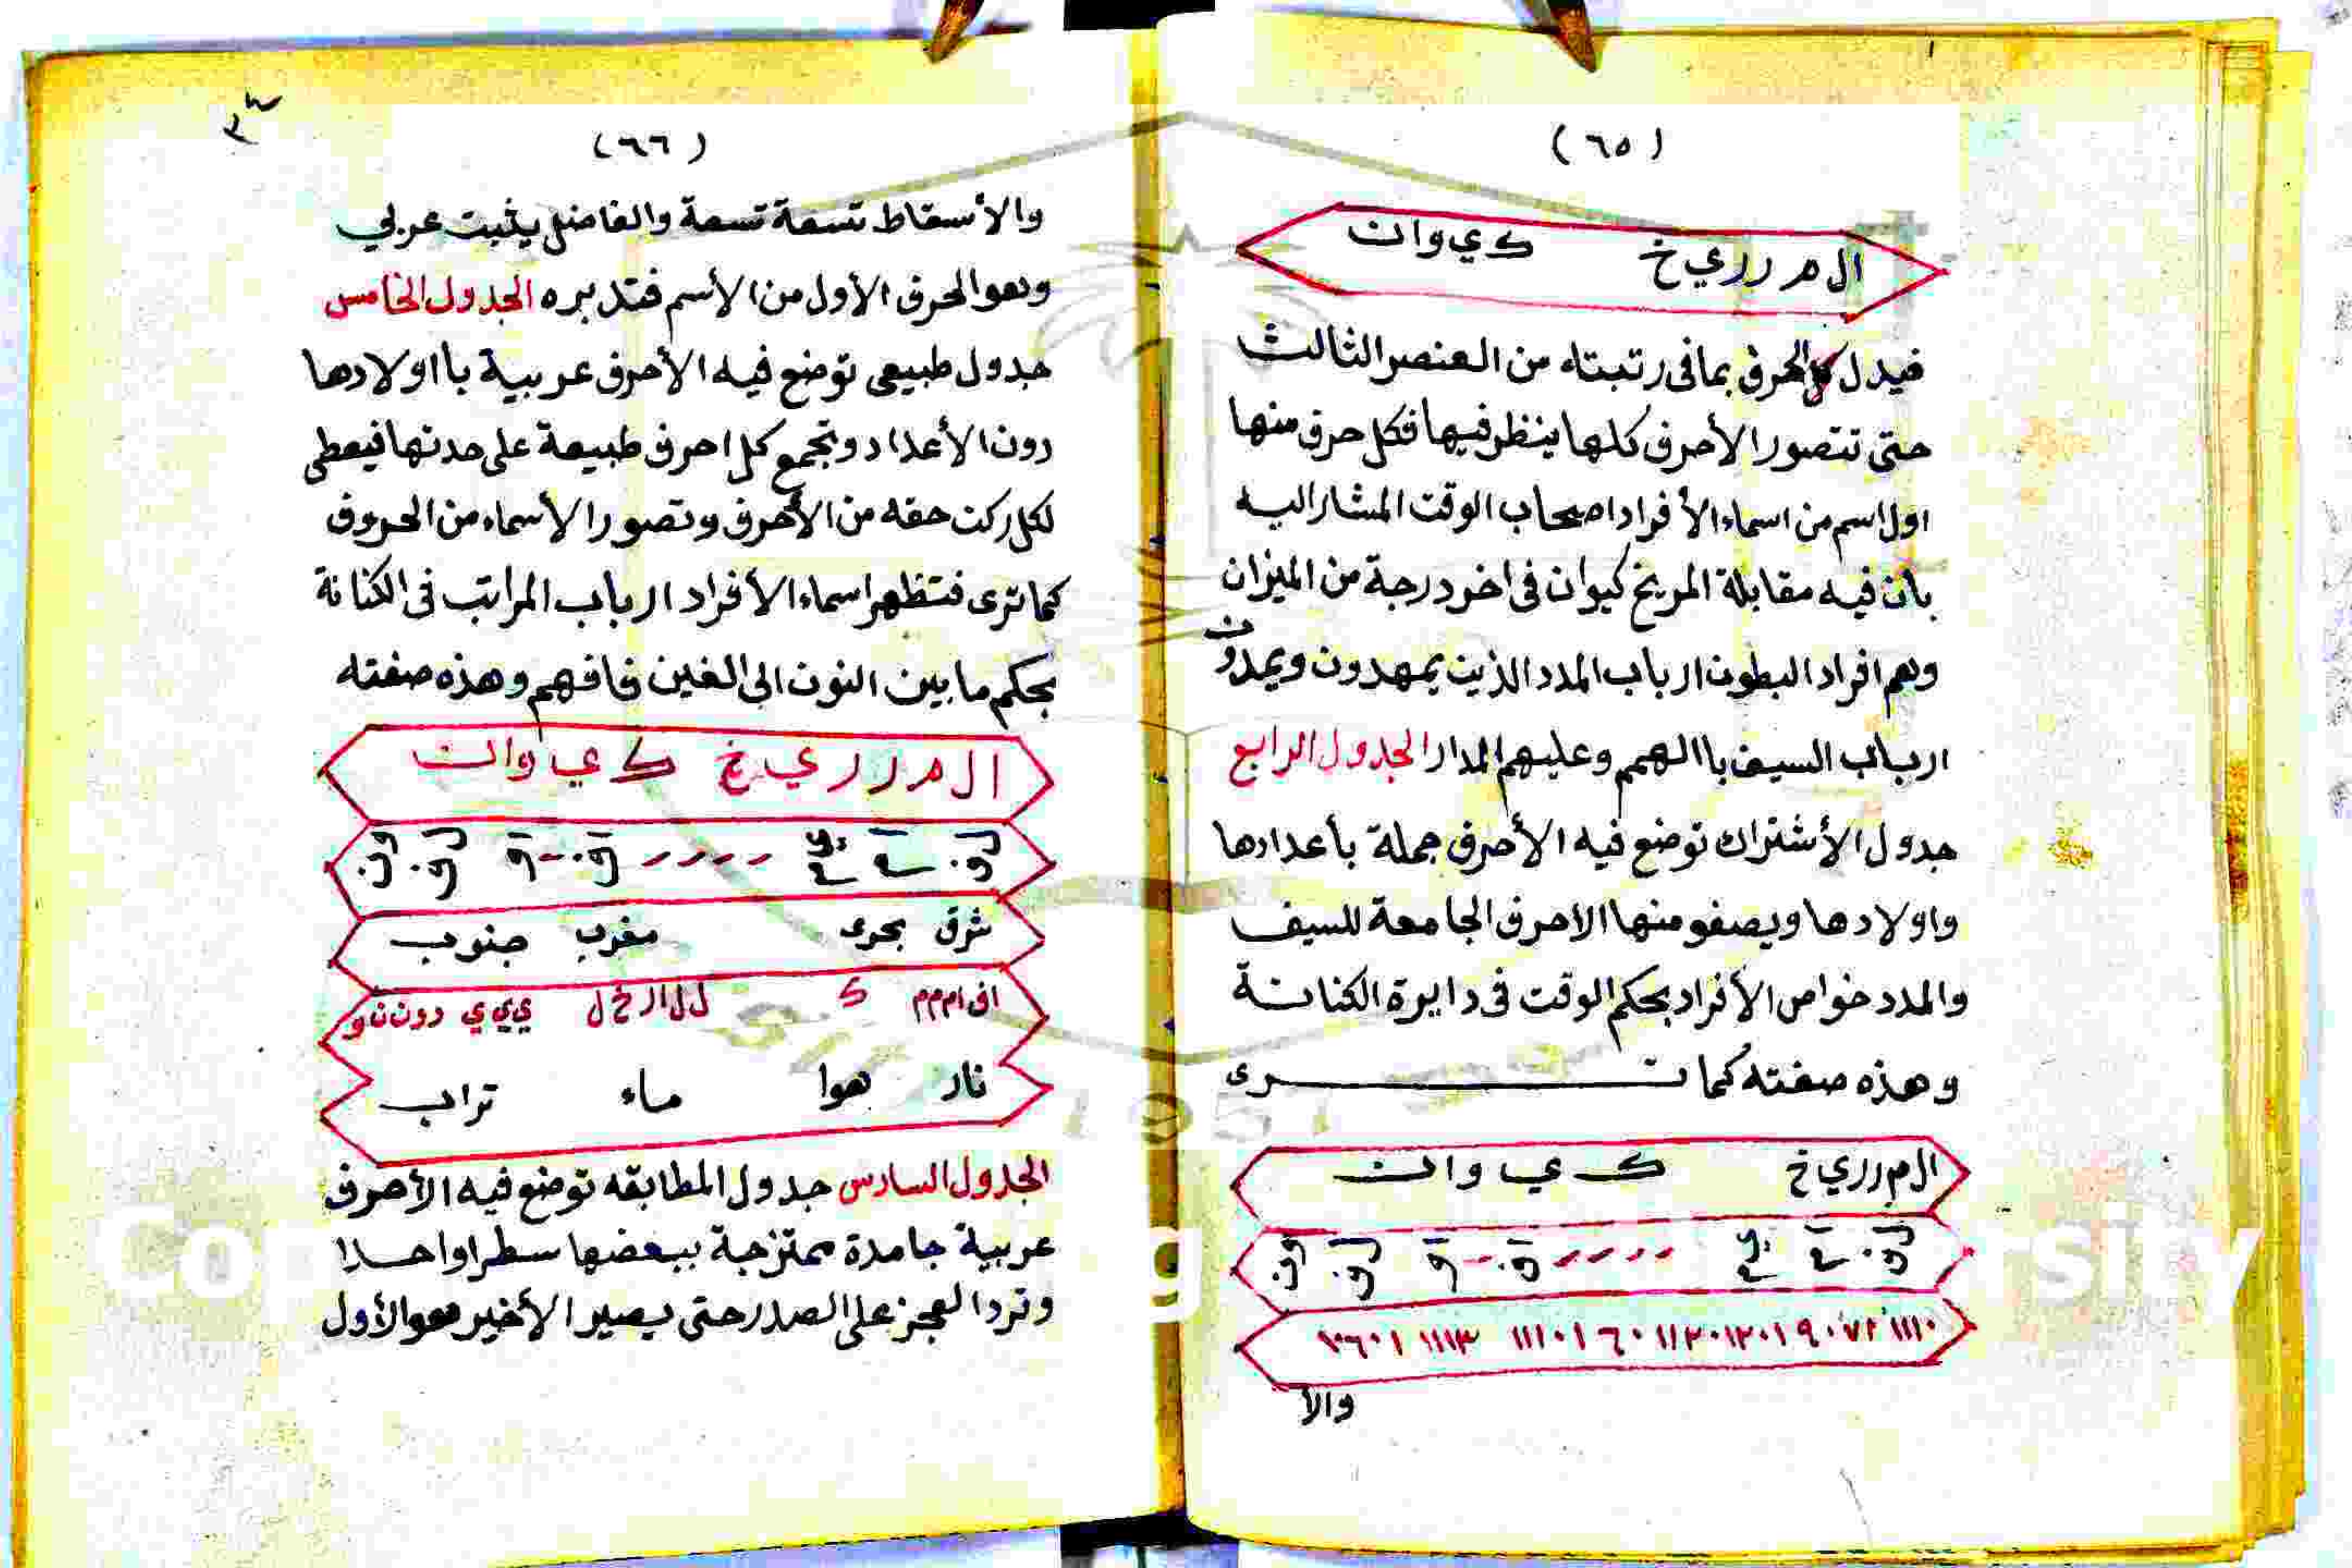 (٦٥)
ال م ر ر ي خ ك ي و ا ن
فيدل كل الحرف بما فى رتبته من العنصر الثالث
حتى تتصور الأحرف كلها ينظر فيها فكل حرف منها
اول اسم من اسماء الأفراد اصحاب الوقت المشار اليه
بان فيه مقابلة المريخ كيوان فى اخر درجة من الميزان
وهم افراد البطون ارباب المدد الذين يمهدون ويمدون
ارباب السيف باالهمم وعليهم المدار الجدول الرابع
جدول الأشتراك توضع فيه الأحرف جملة بأعدادها
واولادها ويصفو منها الاحرف الجامعة للسيف
والمدد خواص الأفراد بحكم الوقت فى دايرة الكنانة
وهذه صفته كما ترى
ال م ر ر ي خ ك ي و ا ن
والأ
(٦٦)
والأسقاط تسعة تسعة والفاضل يثبت عربي
وهو الحرف الأول من الأسم فتدبره الجدول الخامس
جدول طبيعى توضع فيه الأحرف عربية باأولادها
دون الأعداد وتجمع كل احرف طبيعة على حدتها فيعطى
لكل ركن حقه من الأحرف وتصور الأسماء من الحروف
كما ترى فتظهر اسماء الأفراد ارباب المراتب فى الكنانة
بحكم ما بين النون الى الغين فافهم وهذه صفته
ال م ر ر ي خ ك ي و ا ن
شرق بحرى مغرب جنوب
نار هوا ماء تراب
الجدول السادس جدول المطابقه توضع فيه الأحرف
عربية جامدة ممتزجة ببعضها سطرا واحدا
وترد العجز على الصدر حتى يصير الأخير هو الأول